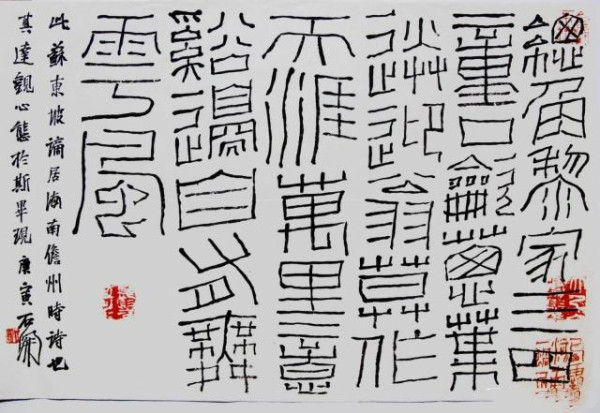 總角黎家三四
童口龡葱葉
送迎翁莫作
天涯萬里意
谿邊自有舞
雩風
此蘇東坡謫居海南儋州時詩也
其達觀心態於斯畢現 庚寅 石開